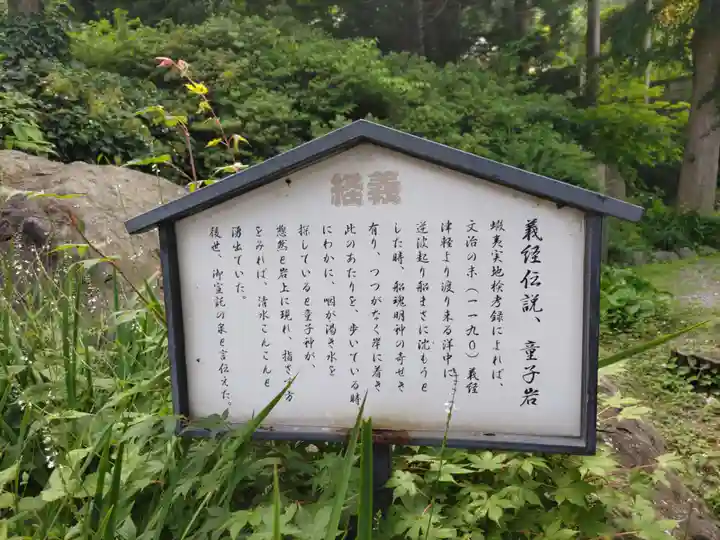 義経
義経伝説、童子岩
蝦夷実地検考録によれば、
文治の末(一一九〇)義経
津軽より渡り来る洋中に
逆波起り船まさに沈もうと
した時、船魂明神の寄せき
有り、つつがなく岸に着き
此のあたりを、歩いている時
にわかに、咽が渇き水を
探していると童子神が、
愁然と岩上に現れ、指さす方
をみれば、清水こんこんと
湧出ていた。
後世、御宣託の泉と言伝えた。